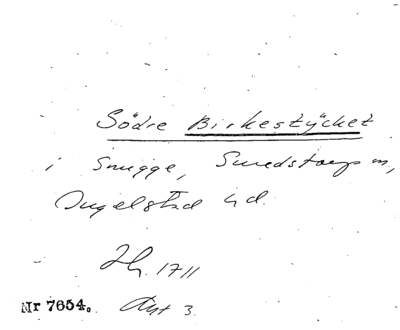 Södre Birkestycket
i Smugge, Smedstorp sn,
Ingelstad hd.
Jb. 1711
Nr 7654. Akt 3.